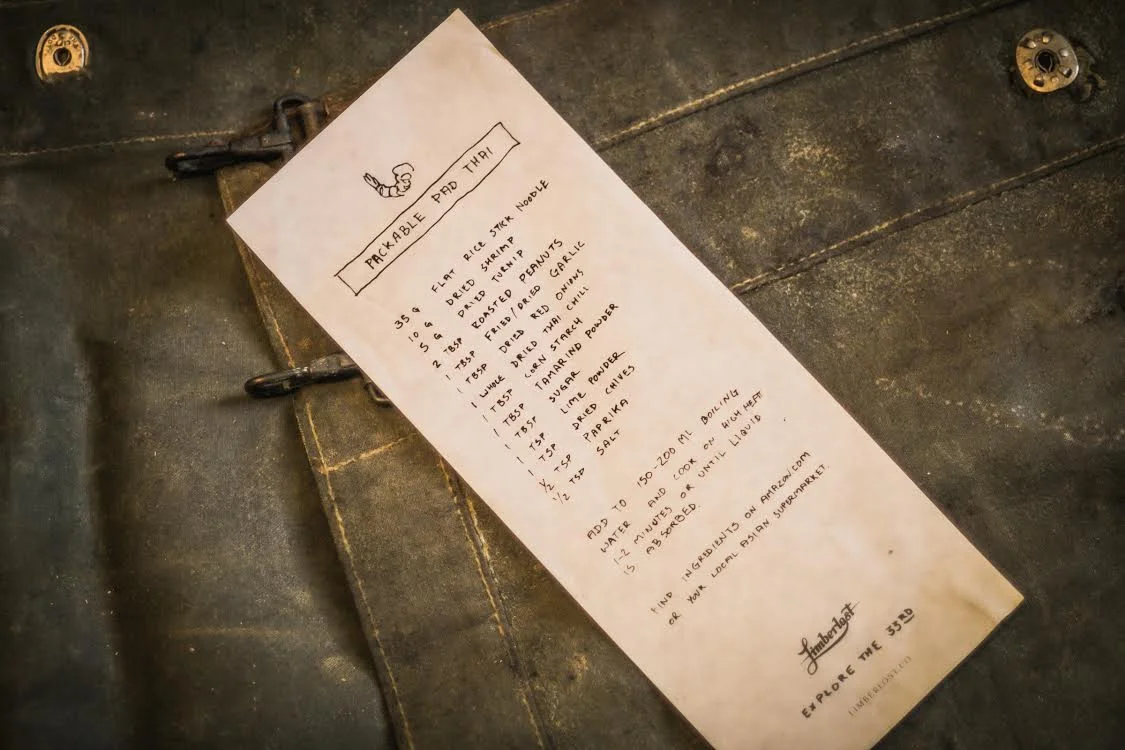 PACKABLE PAD THAI
35 G FLAT RICE STICK NOODLE
10 G DRIED SHRIMP
5 G DRIED TURNIP
2 TBSP ROASTED PEANUTS
1 TBSP FRIED/DRIED GARLIC
1 TBSP DRIED RED ONIONS
1 WHOLE DRIED THAI CHILI
1 TBSP CORN STARCH
1 TBSP TAMARIND POWDER
1 TBSP SUGAR
1 TSP LIME POWDER
1 TSP DRIED CHIVES
½ TSP PAPRIKA
1/2 TSP SALT
ADD TO 150-200 ML BOILING
WATER AND COOK ON HIGH HEAT
1-2 MINUTES OR UNTIL LIQUID
IS ABSORBED.
FIND INGRIDIENTS ON AMAZON.COM
OR YOUR LOCAL ASIAN SUPERMARKET.
Limberlost
EXPLORE THE 33RD
LIMBERLOST.CO